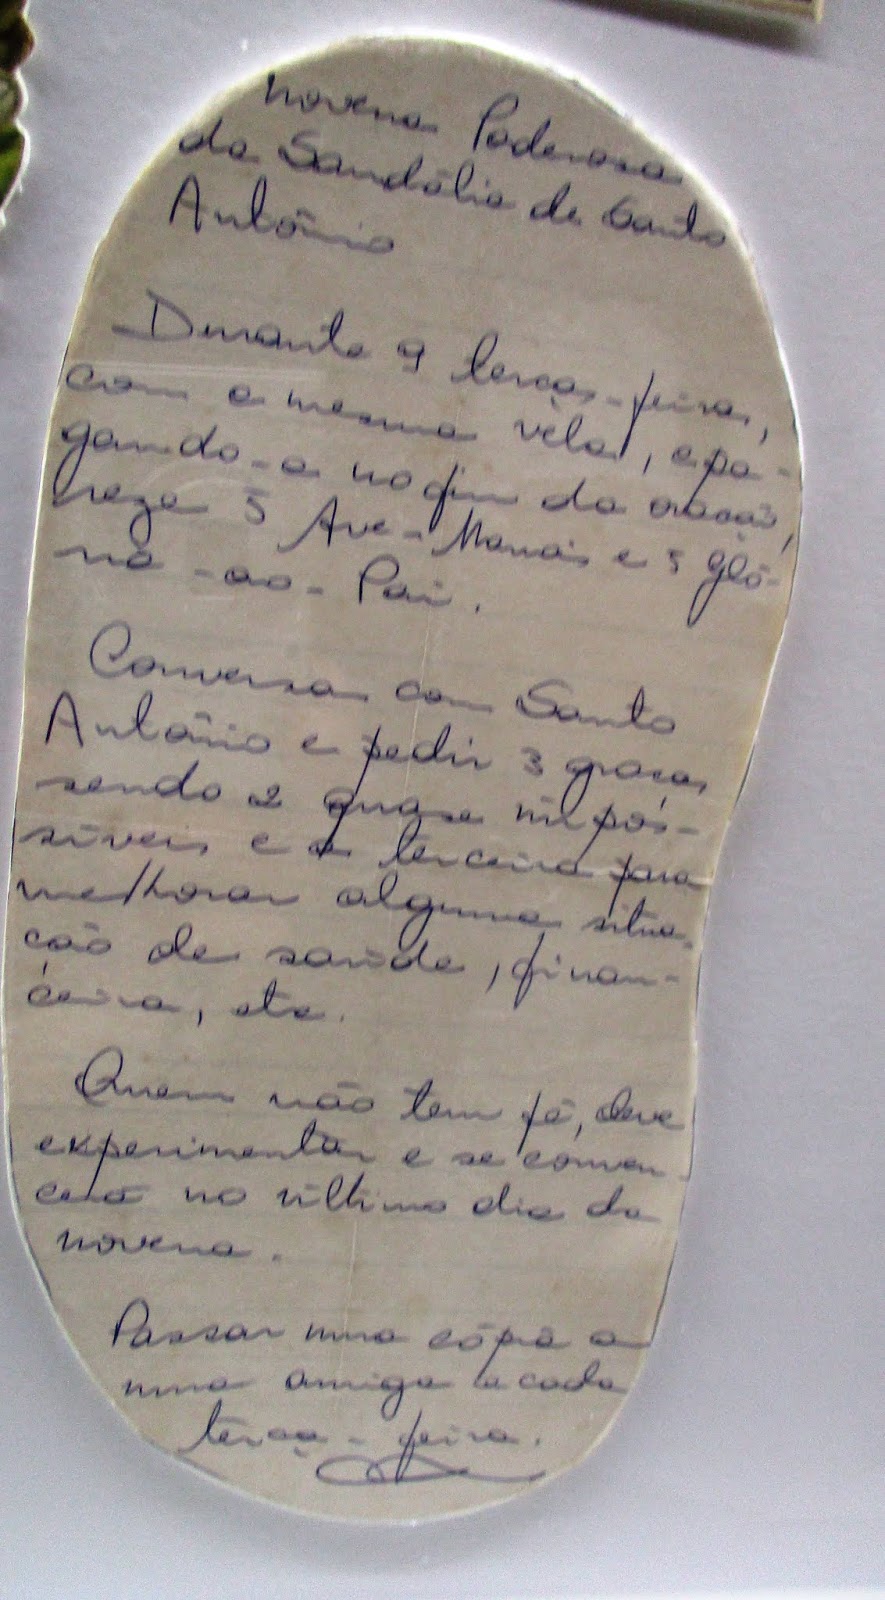 Novena Poderosa
da Sandália de Santo
Antônio
Durante 9 terças-feiras,
com a mesma vela, apa-
gando-a no fim da oração,
reze 5 Ave-Marias e 5 gló-
ria-ao-Pai.
Conversar com Santo
Antônio e pedir 3 graças
sendo 2 quase impos-
síveis e a terceira para
melhorar alguma situa-
ção de saúde, finan-
ceira, etc.
Quem não tem fé, deve
experimentar e se conven-
cerá no último dia da
novena.
Passar uma cópia a
uma amiga a cada
terça-feira.